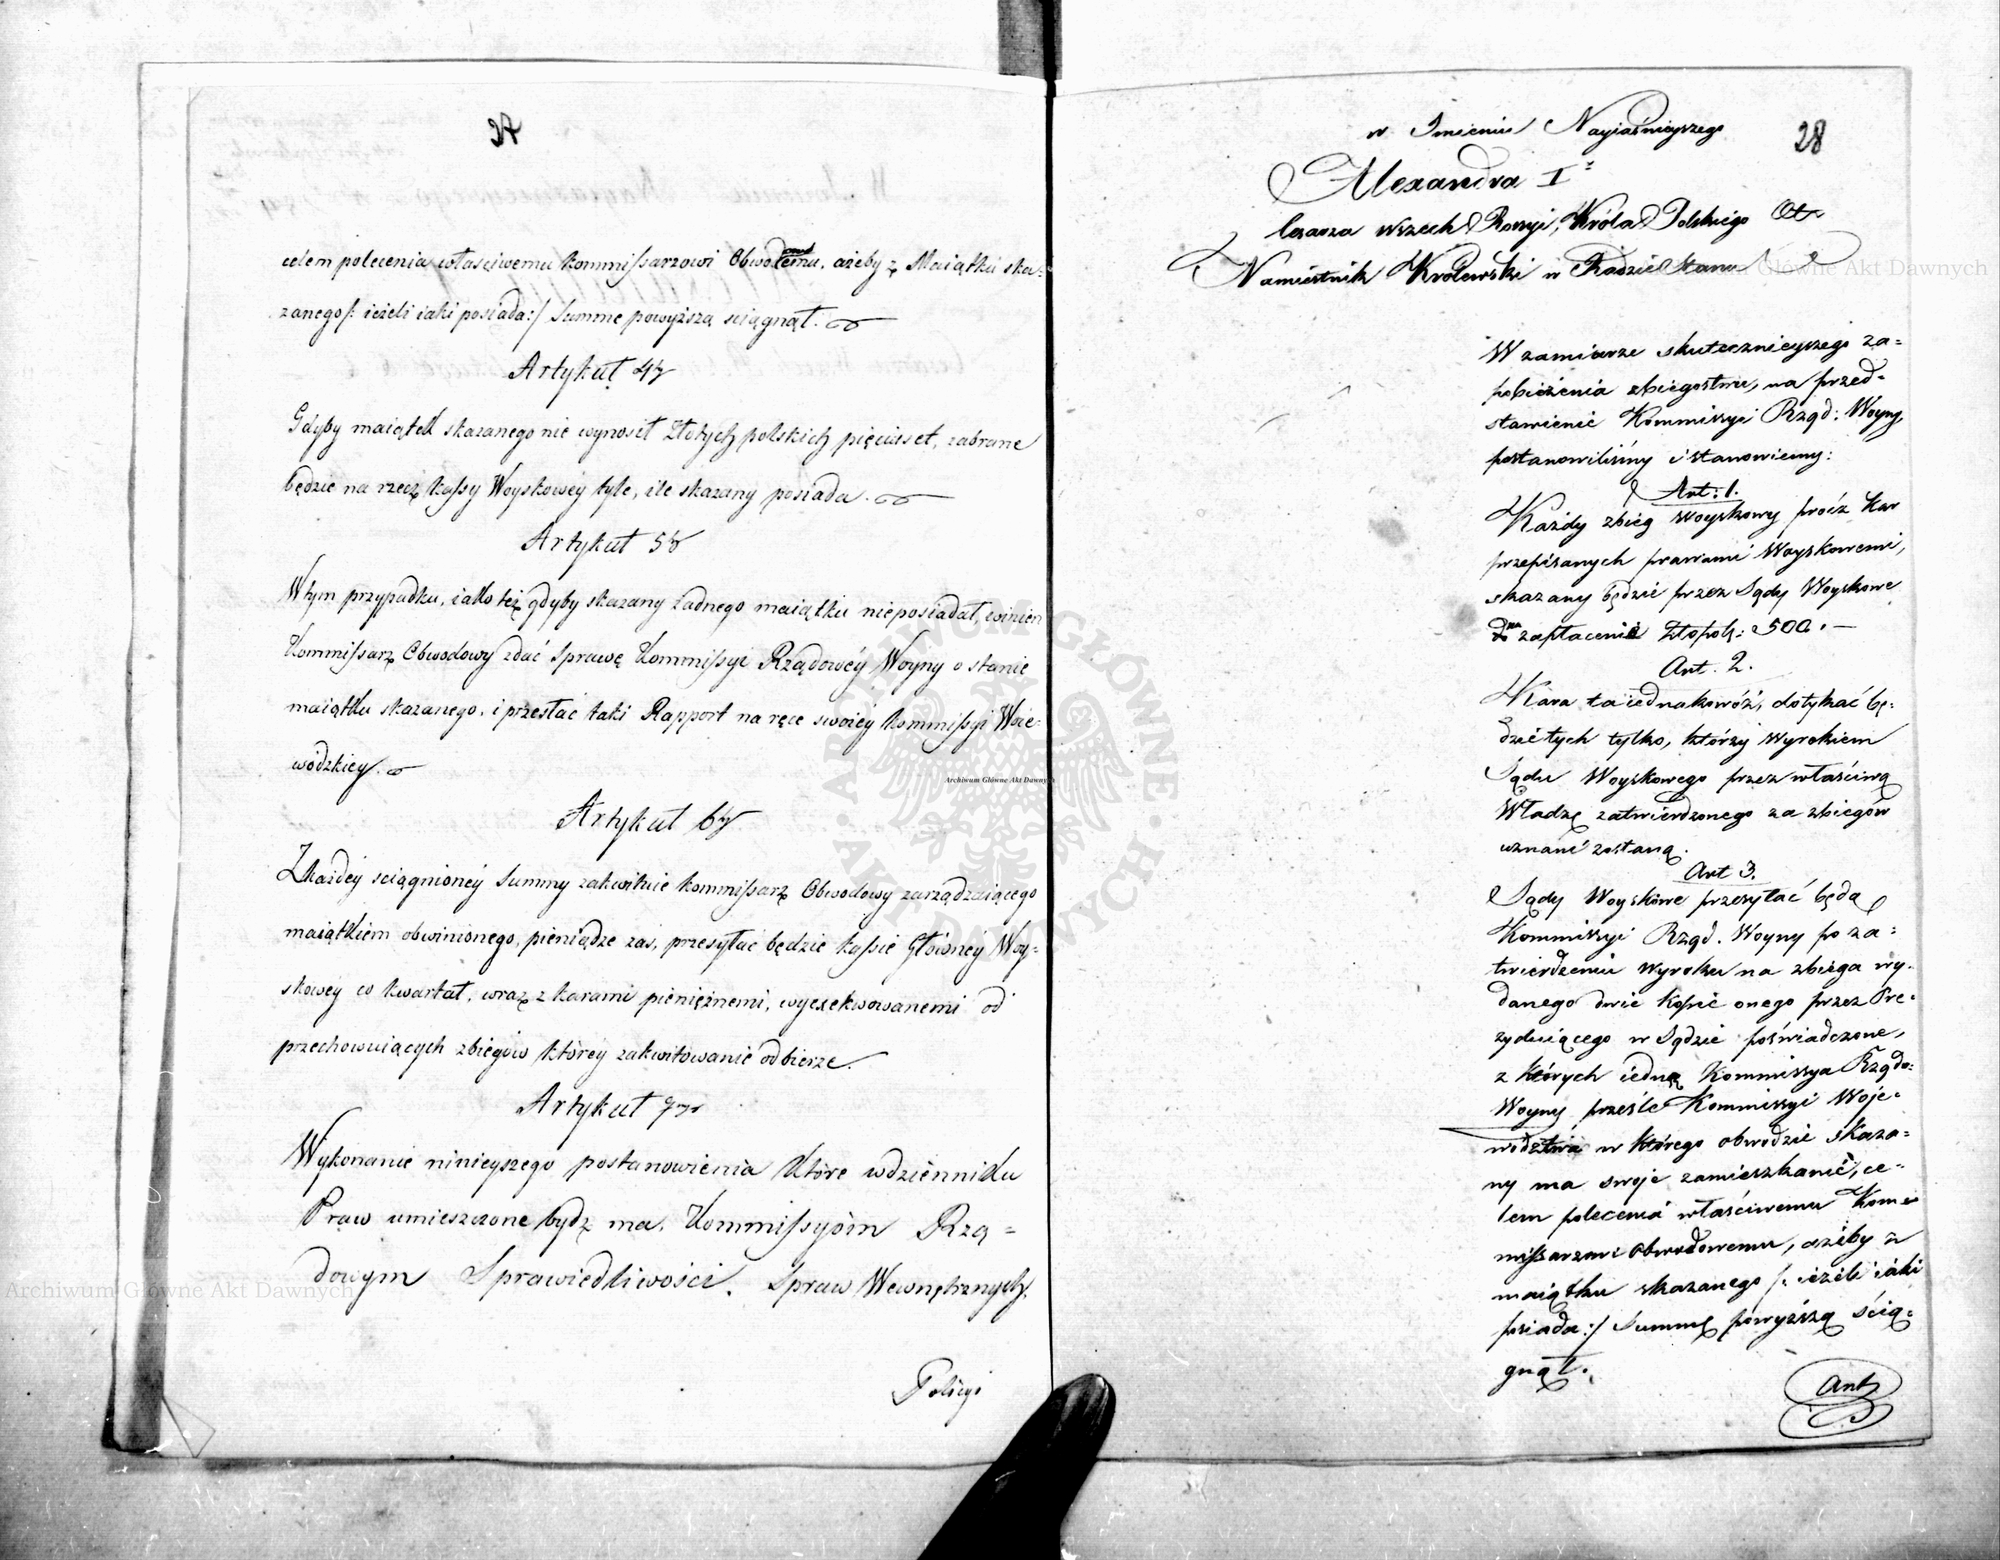 celem polecenia właściwemu Kommissarzowi Obwodowemu, ażeby z Maiątku ska=
zanego /: ieżeli iaki posiada :/ Summę powyższą sciągnął.
Artykuł 4ty
Gdyby maiątek skazanego nie wynosił Złotych polskich pięciuset, zabrane
będzie na rzecz kassy Woyskowey tyle, ile skazany posiada.
Artykuł 5ty
W tym przypadku, iako też gdyby skazany żadnego maiątku nieposiadał, winien
Kommissarz Obwodowy zdać sprawę Kommissyi Rządowéy Woyny o stanie
maiątku skazanego, i przesłać taki Rapport na ręce swoiéy Kommissyi Woie=
wodzkiey.
Artykuł 6ty
Z każdéy sciągnionéy Summy zakwituie Kommissarz Obwodowy zarządzaiącego
maiątkiem obwinionego, pieniądze zaś, przesyłać będzie kassie Głównéy Woy=
skowey co kwartał, wraz z karami pieniężnemi, wyexekwowanemi od
przechowuiących zbiegów którey zakwitowanie odbierze.
Artykuł 7my
Wykonanie ninieyszego postanowienia które w dzienniku
Praw umieszczone bydz ma, Kommissyóm Rzą=
dowym Sprawiedliwości, Spraw Wewnętrznych,
Policyi
28
w Imieniu Nayiaśnieyszego
Alexandra I
Cesarza wszech Rossyi, Króla Polskiego
Namiestnik Królewski w Radzie Stanu
W zamiarze skutecznieyszego za=
pobieżenia zbiegostwu, na przed=
stawienie Kommissyi Rząd: Woyny,
postanowiliśmy i stanowiemy:
Art: 1.
Każdy zbieg woyskowy prócz kar
przepisanych prawami Woyskowemi,
skazany będzie przez Sądy Woyskowe
na zapłacenie Złopol: 500.—
Art. 2.
Kara ta iednakowóż, dotykać bę=
dzie tych tylko, którzy wyrokiem
Sądu Woyskowego przez właściwą
Władzę zatwierdzonego za zbiegów
uznani zostaną.
Art 3.
Sądy Woyskowe przesyłać będą
Kommissyi Rząd. Woyny po za=
twierdzeniu wyroku na zbiega wy=
danego dwie kopie onego przez Pre=
zyduiącego w Sądzie poświadczone,
z których iednę Kommissya Rządo:
Woyny prześle Kommissyi Woje=
wództwa w którego obwodzie skaza=
ny ma swoje zamieszkanie, ce=
lem polecenia właściwemu Kom=
missarzowi Obwodowemu, ażeby z
maiątku skazanego /: ieżeli iaki
posiada :/ Summę powyższą ścią=
gnął.
Art
Archiwum Główne Akt Dawnych
Archiwum Główne Akt Dawnych
Archiwum Główne Akt Dawnych
ARCHIWUM GŁÓWNE AKT DAWNYCH